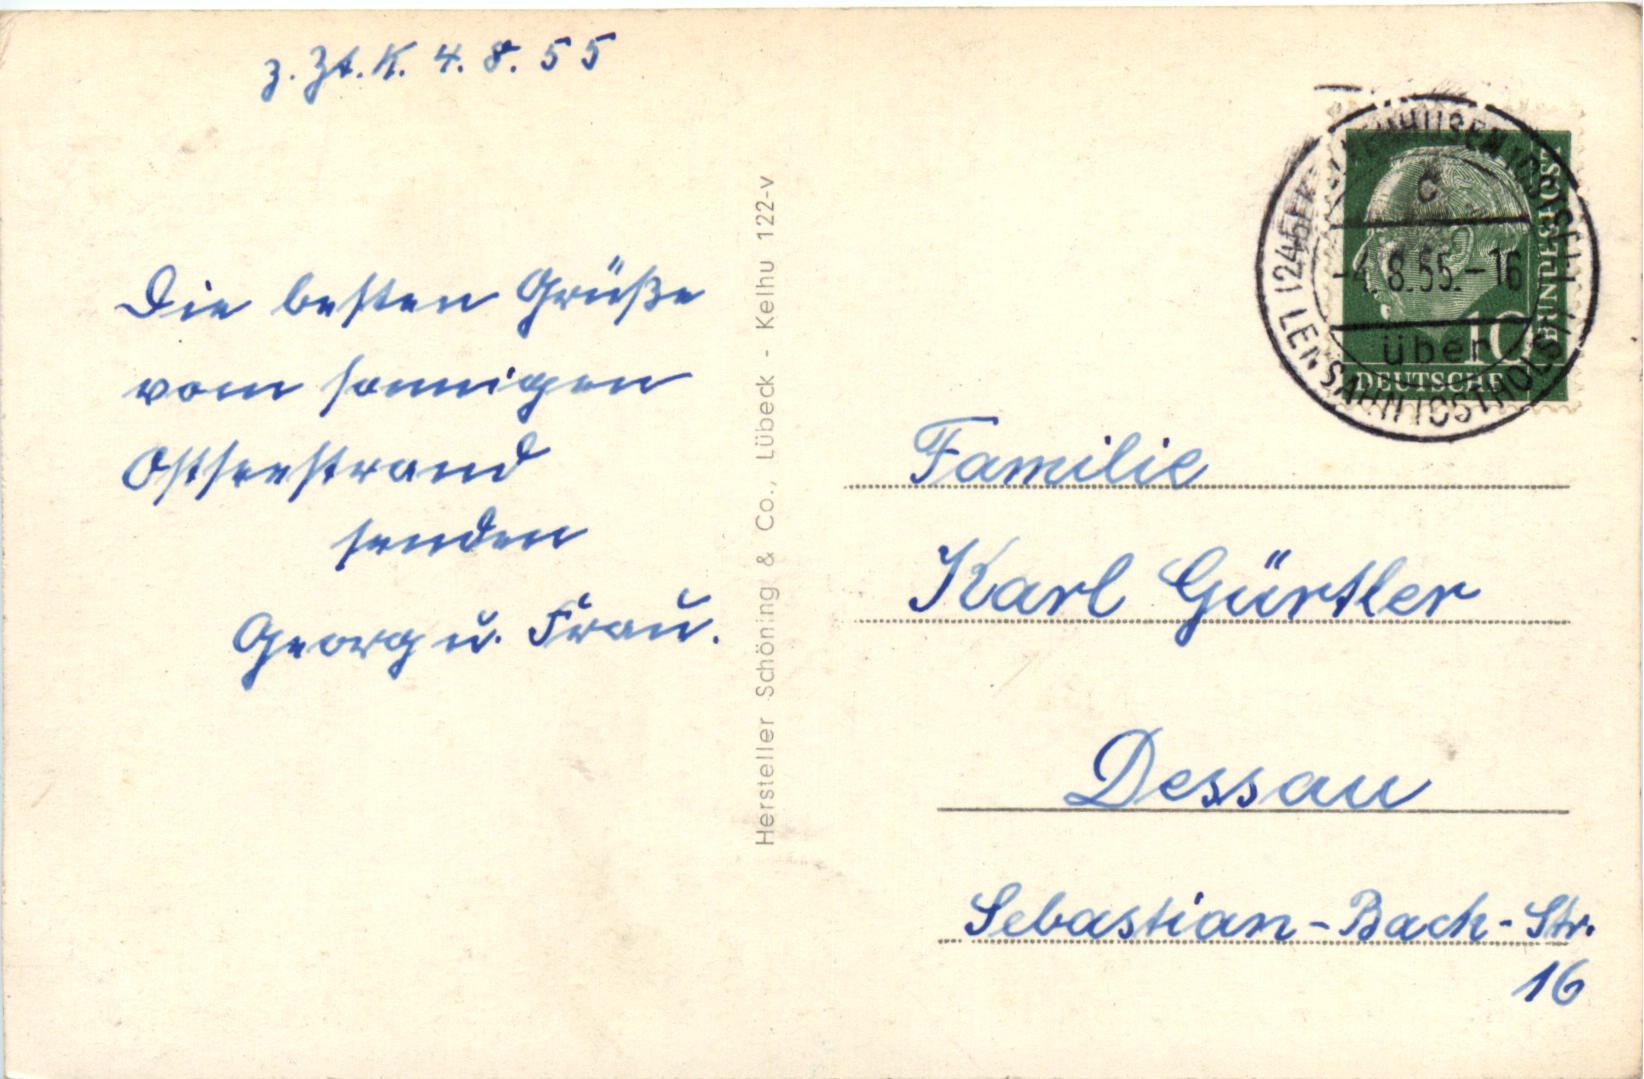 z. Zt. K. 4. 8. 55
Die besten Grüße
vom sonnigen
Ostseestrand
senden
Georg u. Frau.
Hersteller Schöning & Co., Lübeck - Kelhu 122-v
C
-4.8.55.-16
über
LENSAHN (OSTHOLST)
10
DEUTSCHE
BUNDESPOST
Familie
Karl Gürtler
Dessau
Sebastian-Bach-Str.
16